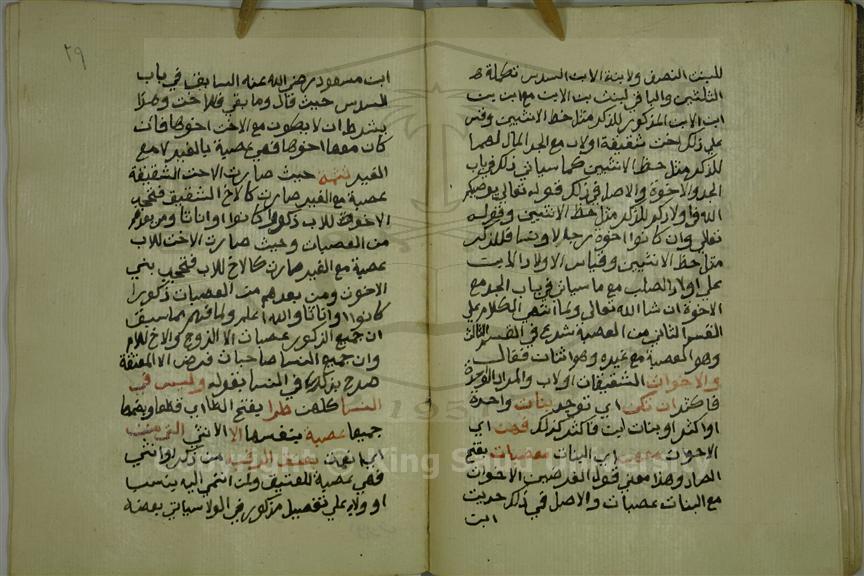 للبنت النصف ولابنة الابن السدس تكملة
الثلثين والباقي لبنت بن الابن مع ابن بن
ابن الابن المذكور للذكر مثل حظ الانثيين وقس
على ذلك اخت شقيقة او لاب مع الجد المال لهما
للذكر مثل حظ الانثيين كما سياتي ذلك في باب
الجد والاخوة والاصل في ذلك قوله تعالى يوصيكم
الله في اولادكم للذكر مثل حظ الانثيين وقوله
تعالى وان كانوا اخوة رجالا ونسا فللذكر
مثل حظ الانثيين وقياس الاولاد الابن
على اولاد الصلب مع ما سياتي في باب الجد مع
الاخوة ان شا الله تعالى ولما انتهى الكلام على
القسم الثاني من العصبة شرع في القسم الثالث
وهو العصبة مع غيره وهو اثنان فقال
والاخوات الشقيقات او لاب والمراد الواحدة
فاكثر ان تكن اي توجد بنات واحدة
او اكثر او بنات ابن فاكثر كذلك فهن اي
الاخوات معهن اي البنات معصبات بفتح
الصاد وهذا معنى قول الفرضيين الاخوات
مع البنات عصبات والاصل في ذلك حديث
ابن
٢٩
ابن مسعود رضي الله عنه السابق في باب
السدس حيث قال وما بقي فللاخت وهذا
بشرط ان لا يكون مع الاخت اخوها فان
كان معها اخوها فهي عصبة بالغير لا مع
الغير تتمة حيث صارت الاخت الشقيقة
عصبة مع الغير صارت كالاخ الشقيق فتحجب
الاخوة للاب ذكورا كانوا او اناثا ومن بعدهم
من العصبات وحيث صارت الاخت للاب
عصبة مع الغير صارت كالاخ للاب فتحجب بني
الاخوة ومن بعدهم من العصبات ذكورا
كانوا او اناثا والله اعلم ولما فهم مما سبق
ان جميع الذكور عصبات الا الزوج والاخ للام
وان جميع النسا صاحبات فرض الا المعتقة
صرح بذلك في النسا بقوله وليس في
النسا كلهن طرا بفتح الطا اي قطعا وبضمها
جميعا عصبة بنفسها الا الانثى التي منت
اي انعمت بعتق الرقبة من ذكر او انثى
فهي عصبة للعتيق ولمن انتمى اليه بنسب
او ولاء على تفصيل مذكور في الولا سياتي بعضه